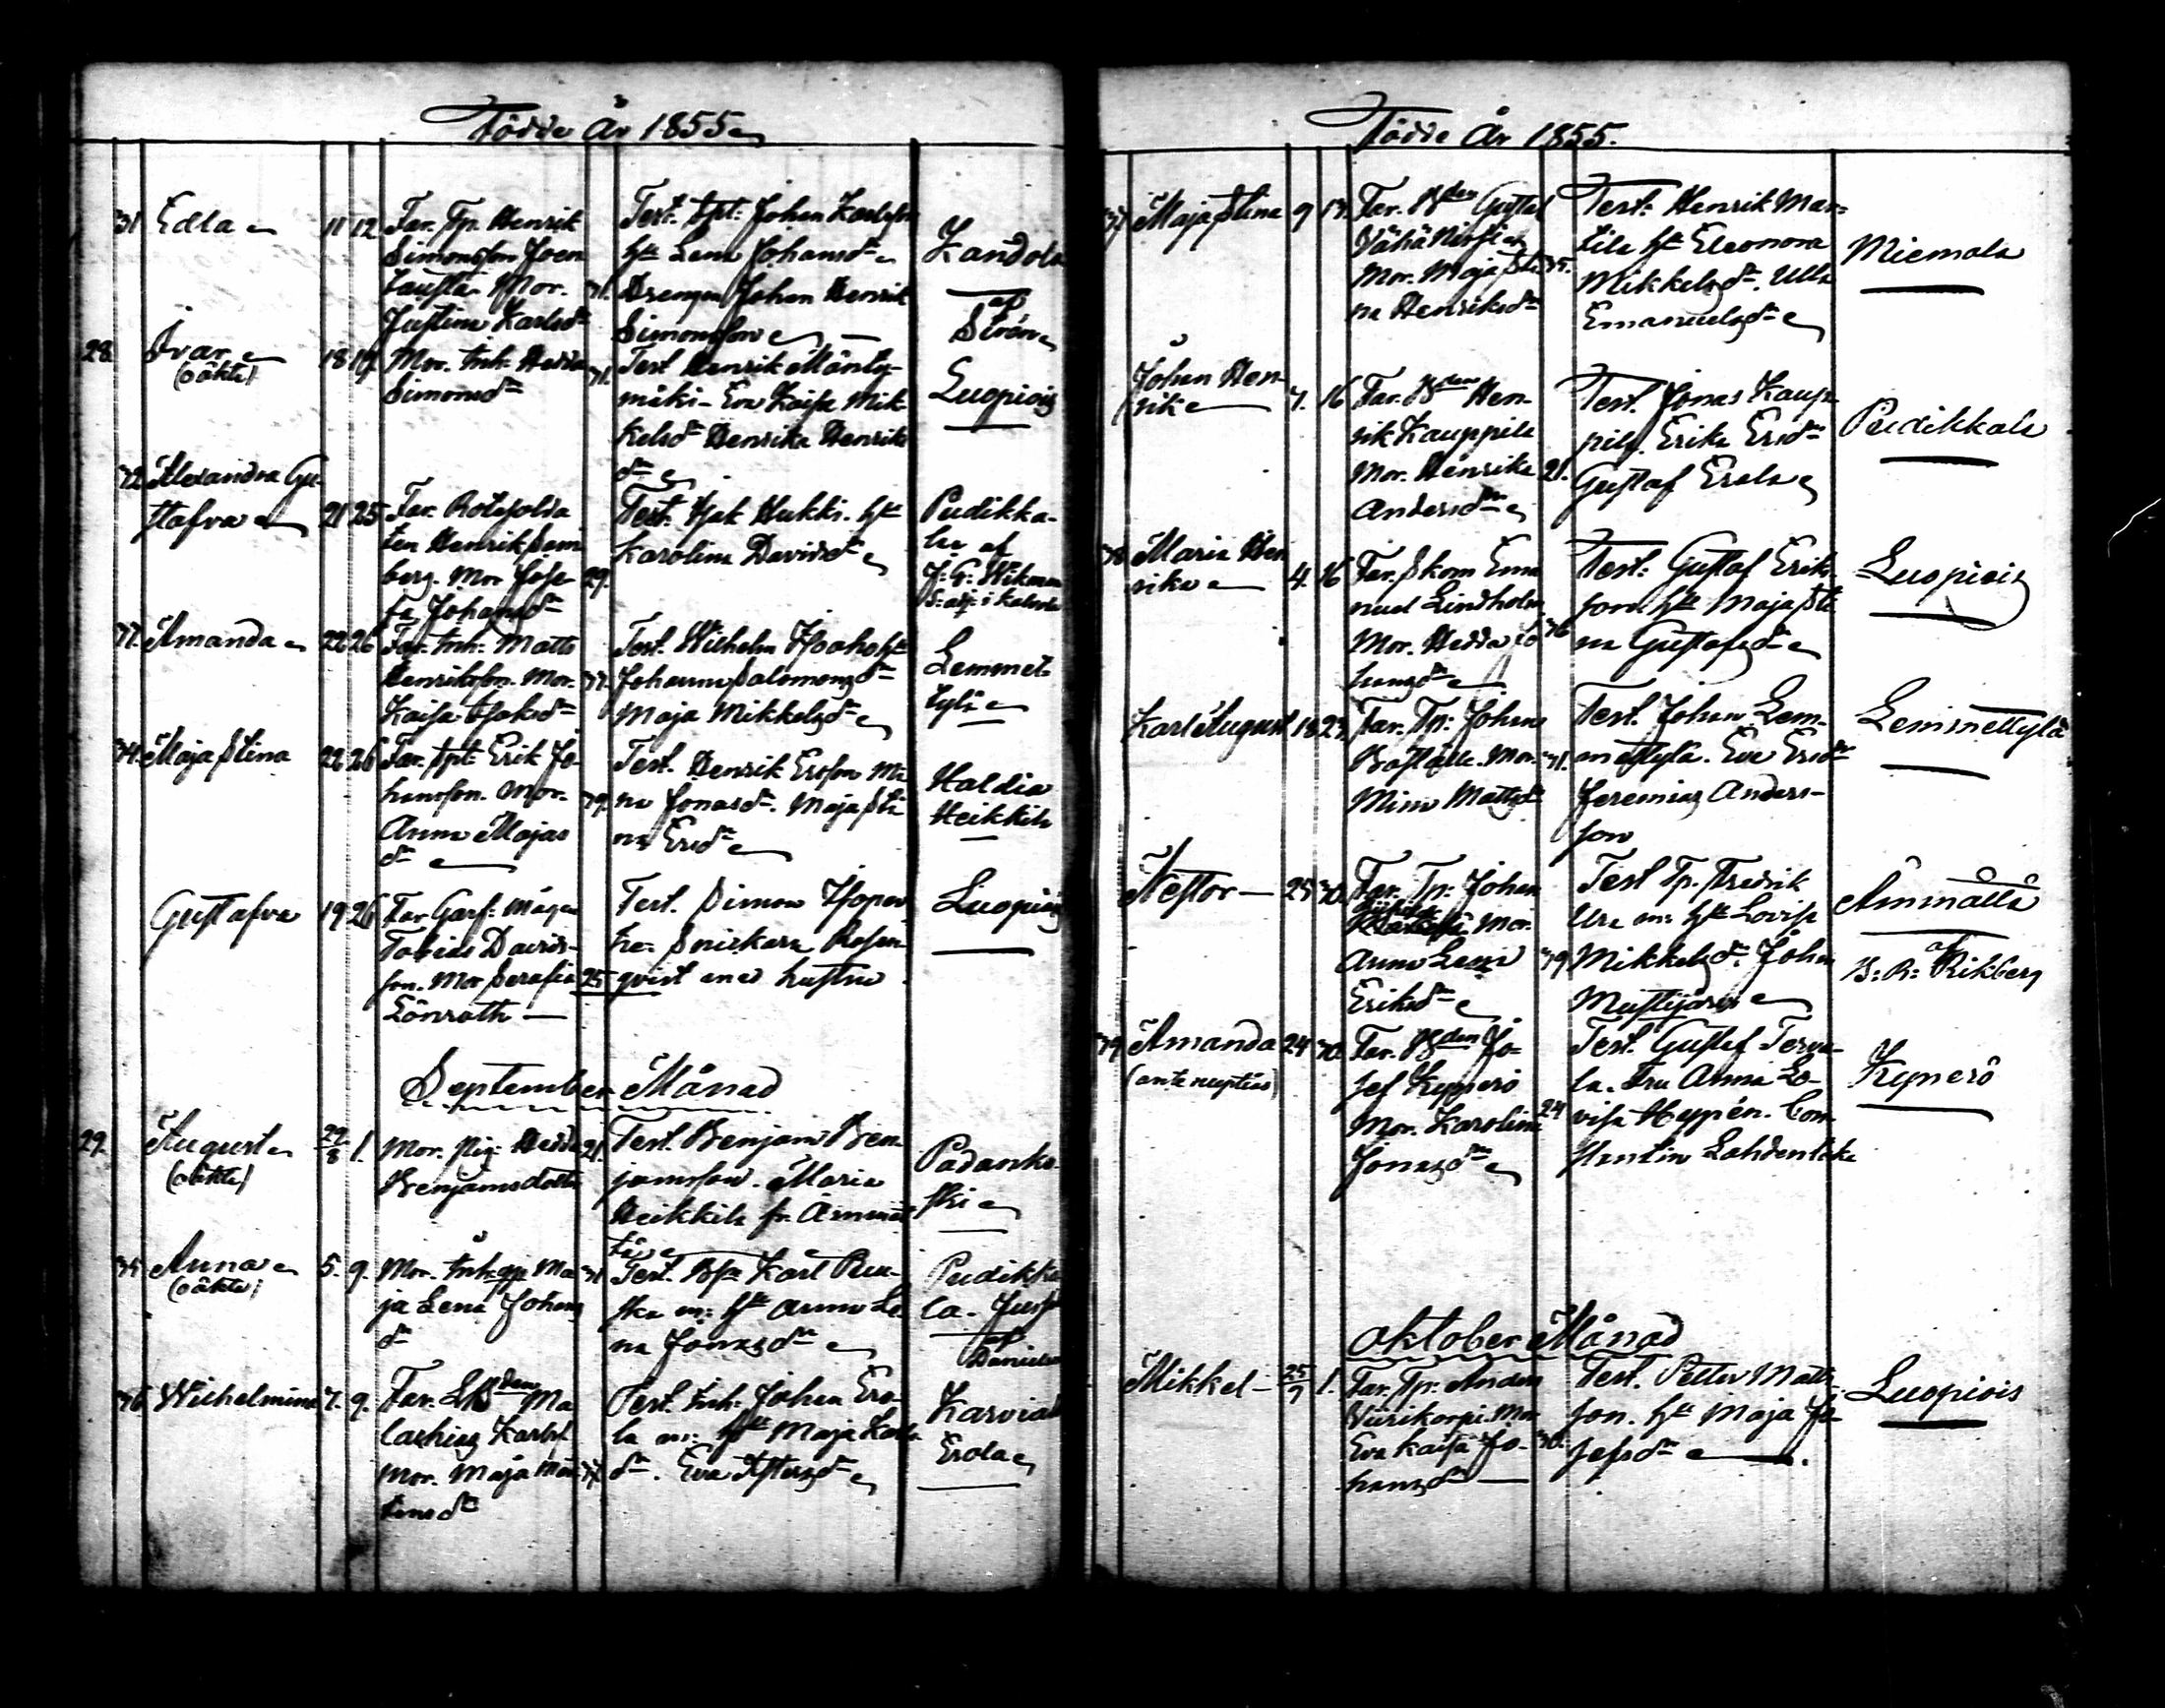 Födde År 1855
31 Edla 11 12 Far. Tp. Henrik
Simonsson Joen
Mor.
Justina Karlsdr
31.
Test. Spt: Johan Karlsson
hst Lena Johansdr
Drengen Johan Henrik
Simonsson
Kandola
af
Ström
28. Ivar 18 19. Mor. Inh: Hedda
(oäkta) Simonsdr
31.
Test Henrik Mänty-
mäki - Eva Kaisa Mik-
kelsdr Henrika Henriks
dr
Luopiois
32. Alexandra Gu-
stafva 21 25 Far. Rotesolda
ten Henrik
berg. Mor Jose-
fa Johansdr
29.
Test. Isak Hukki. hst
Karolina Davidsdr
Pudikka-
la af
J. G. Wikman
33. Amanda 22 26 Far. Inh: Matts
Henriksson. Mor.
Kaisa Isaksdr
37.
Test. Wilhelm Isoaho hst
Johanna Salomonsdr
Maja Mikkelsdr
Lemmet-
tylä
34. Maja Stina 22 26 Far. Spt: Erik Jo-
hansson. Mor.
Anna Majas
dr
39.
Test. Henrik Ersson Mi
na Jonasdr. Maja Sti
na Ersdr
Haldia
Heikkilä
Gustafva 19 26 Far Garf: mågen
Tobias Davids-
son. Mor Serafia
Lönroth
25
Test. Simon
Snickaren Rosen
qvist med hustru
Luopiois
September Månad
29. August 29/8 1. Mor. Pig: Hedda
(oäkta) Benjamsdotter
21.
Test. Benjam Ben-
jamsson. Maria
Heikkilä fr. Ämmät
tä
Padanko-
ski
35. Anna 5. 9. Mor. Inh: Ma
(oäkta) ja Lena Johans
dr
31
Test. Karl
m: hst Anna Le-
na Jonasdr
Pudikka
la.
af
36 Wilhelmina 7. 9. Far. Ma
lachias
Mor. Maja Mår
tensdr
Test. Inh: Johan Ero-
la m: hst Maja Karls
dr. Eva
Karviala
Erola
Födde År 1855.
37 Maja Stina 9 13. Far. Bden Gustaf
Vähä
Mor. Maja Sti
na Henriksdr
35.
Test: Henrik Mar-
tila hst Eleonora
Mikkelsdr. Ulla
Emanuelsdr
Miemola
Johan Hen-
rik 7. 16 Far. Bden Hen-
rik Kauppila
Mor. Henrika
Andersdr
21.
Test. Jonas Kaup-
pila. Erika Ersdr
Gustaf Erola
Pudikkala
38 Maria Hen
rika 4. 16 Far. Skom Ema
nuel Lindholm
Mor. Hedda Jo
hansdr
36
Test: Gustaf Eriks
son. hst Maja Sti
na Gustafsdr
Luopiois
Karl August 18 23. Far. Tp: Johan
Mor.
Mina Mattsdr
31.
Test. Johan Lem-
mettylä. Eva Ersdr
Jeremias Anders-
son
Lemmettylä
Nestor 25 30. Far. Tp: Johan
Mor.
Anna Lena
Eriksdr
39
Test Tp. Fredrik
m: hst Lovisa
Mikkelsdr. Johan
Mustijärvi
Ämmättä
af
B: R: Rikberg
39 Amanda 24 30. Far. Bden Jo-
(ante nuptias) sef Kyynerö
Mor. Karolina
Jonasdr
24
Test. Gustaf Terva-
la. Fru Anna Lo-
visa Heppén. Con-
stantin Lahdentaka
Kynerö
Oktober Månad
Mikkel 25/9 1. Far. Tp: Anders
Viirikorpi. Mor
Eva Kaisa Jo-
hansdr
30.
Test. Petter Matts
son. hst Maja Jo-
sefsdr
Luopiois